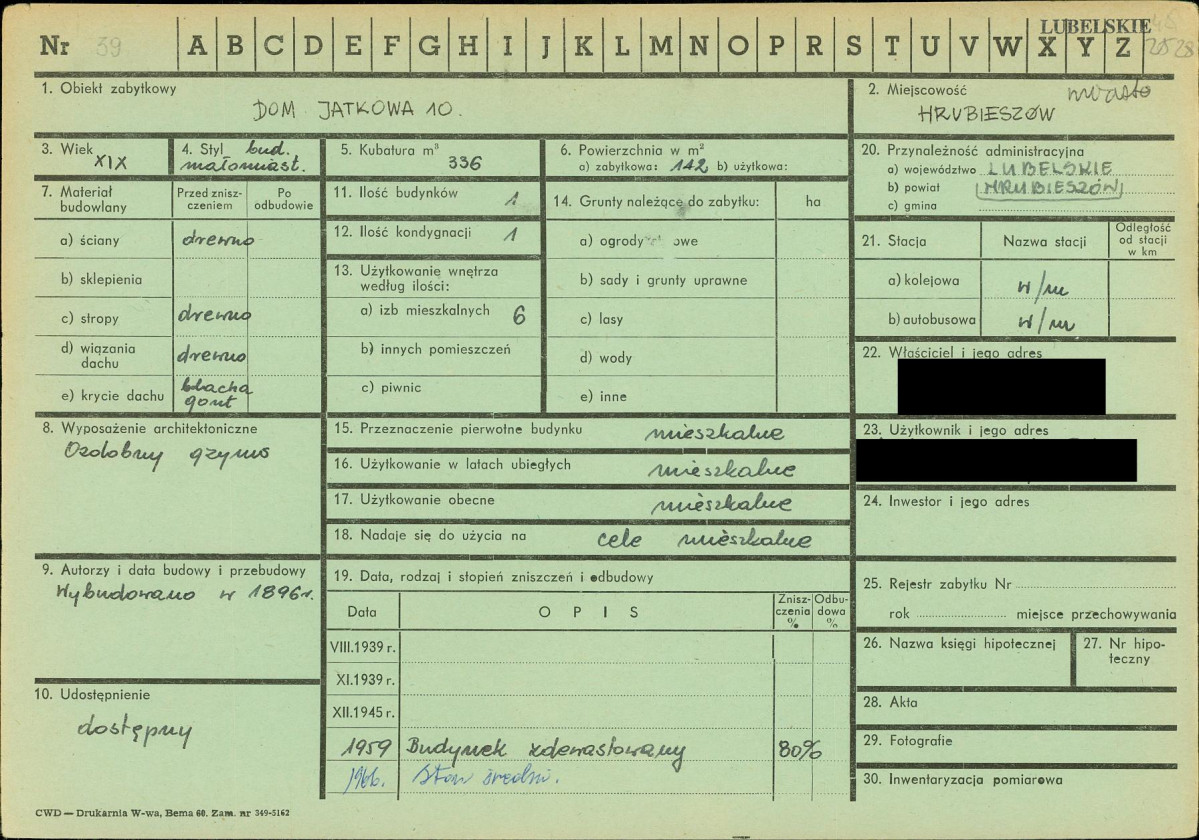 Nr 39 A B C D E F G H I J K L M N O P R S T U V W X Y Z LUBELSKIE
1. Obiekt zabytkowy
DOM JATKOWA 10.
2. Miejscowość miasto
HRUBIESZÓW
3. Wiek
XIX
4. Styl bud.
małomiast.
5. Kubatura m³
336
6. Powierzchnia w m²
a) zabytkowa: 142 b) użytkowa:
20. Przynależność administracyjna
a) województwo LUBELSKIE
b) powiat HRUBIESZÓW
c) gmina
7. Materiał budowlany
Przed zniszczeniem
Po odbudowie
a) ściany drewno
b) sklepienia
c) stropy drewno
d) wiązania dachu drewno
e) krycie dachu blacha gont
11. Ilość budynków 1
12. Ilość kondygnacji 1
13. Użytkowanie wnętrza
według ilości:
a) izb mieszkalnych 6
b) innych pomieszczeń
c) piwnic
14. Grunty należące do zabytku: ha
a) ogrody owe
b) sady i grunty uprawne
c) lasy
d) wody
e) inne
21. Stacja Nazwa stacji
Odległość od stacji w km
a) kolejowa w/m
b) autobusowa w/m
22. Właściciel i jego adres
8. Wyposażenie architektoniczne
Ozdobny gzyms
15. Przeznaczenie pierwotne budynku mieszkalne
16. Użytkowanie w latach ubiegłych mieszkalne
17. Użytkowanie obecne mieszkalne
18. Nadaje się do użycia na cele mieszkalne
23. Użytkownik i jego adres
24. Inwestor i jego adres
9. Autorzy i data budowy i przebudowy
Wybudowano w 1896 r.
10. Udostępnienie
dostępny
19. Data, rodzaj i stopień zniszczeń i odbudowy
Data OPIS
Zniszczenia %
Odbudowa %
VIII.1939 r.
XI.1939 r.
XII.1945 r.
1959 Budynek zdewastowany 80%
1966. Stan średni.
25. Rejestr zabytku Nr
rok miejsce przechowywania
26. Nazwa księgi hipotecznej
27. Nr hipoteczny
28. Akta
29. Fotografie
30. Inwentaryzacja pomiarowa
CWD — Drukarnia W-wa, Bema 60. Zam. nr 349-5162